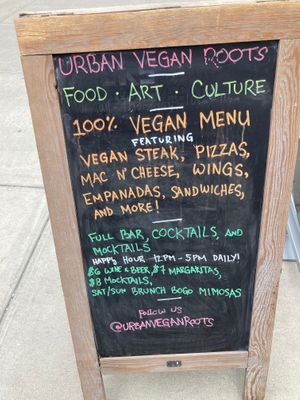 URBAN VEGAN ROOTS
FOOD · ART · CULTURE
100% VEGAN MENU
FEATURING
VEGAN STEAK, PIZZAS,
MAC N' CHEESE, WINGS,
EMPANADAS, SANDWICHES,
AND MORE!
FULL BAR, COCKTAILS, AND
MOCKTAILS
HAPPY HOUR 12PM - 5PM DAILY!
$6 WINE & BEER, $7 MARGARITAS,
$8 MOCKTAILS,
SAT/SUN BRUNCH BOGO MIMOSAS
FOLLOW US
@URBANVEGANROOTS